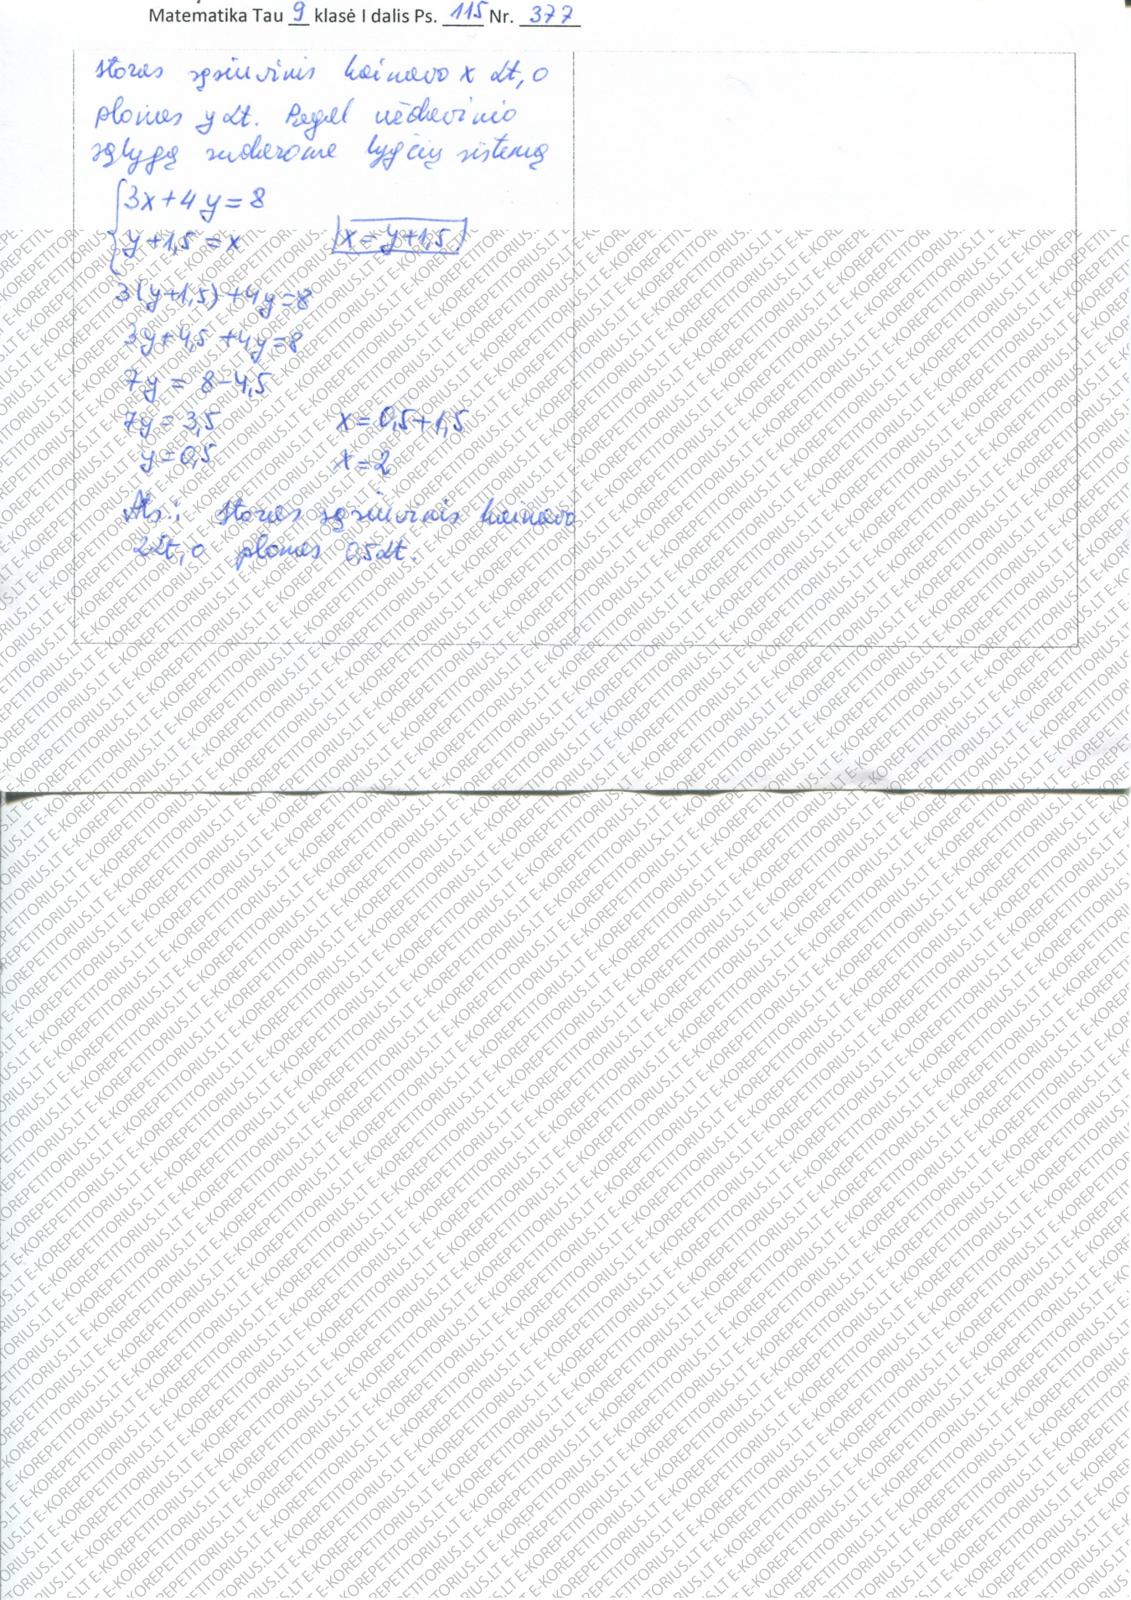 Matematika Tau 9 klasė I dalis Ps. 115 Nr. 377
storas sąsiuvinis kainavo x Lt, o
plonas y Lt. Pagal uždavinio
sąlygą sudarome lygčių sistemą
3x+4y=8
y+1,5=x x=y+1,5
3(y+1,5)+4y=8
3y+4,5+4y=8
7y=8-4,5
7y=3,5 x=0,5+1,5
y=0,5 x=2
Ats.: storas sąsiuvinis kainavo
2Lt, o plonas 0,5Lt.
E-KOREPETITORIUS.LT